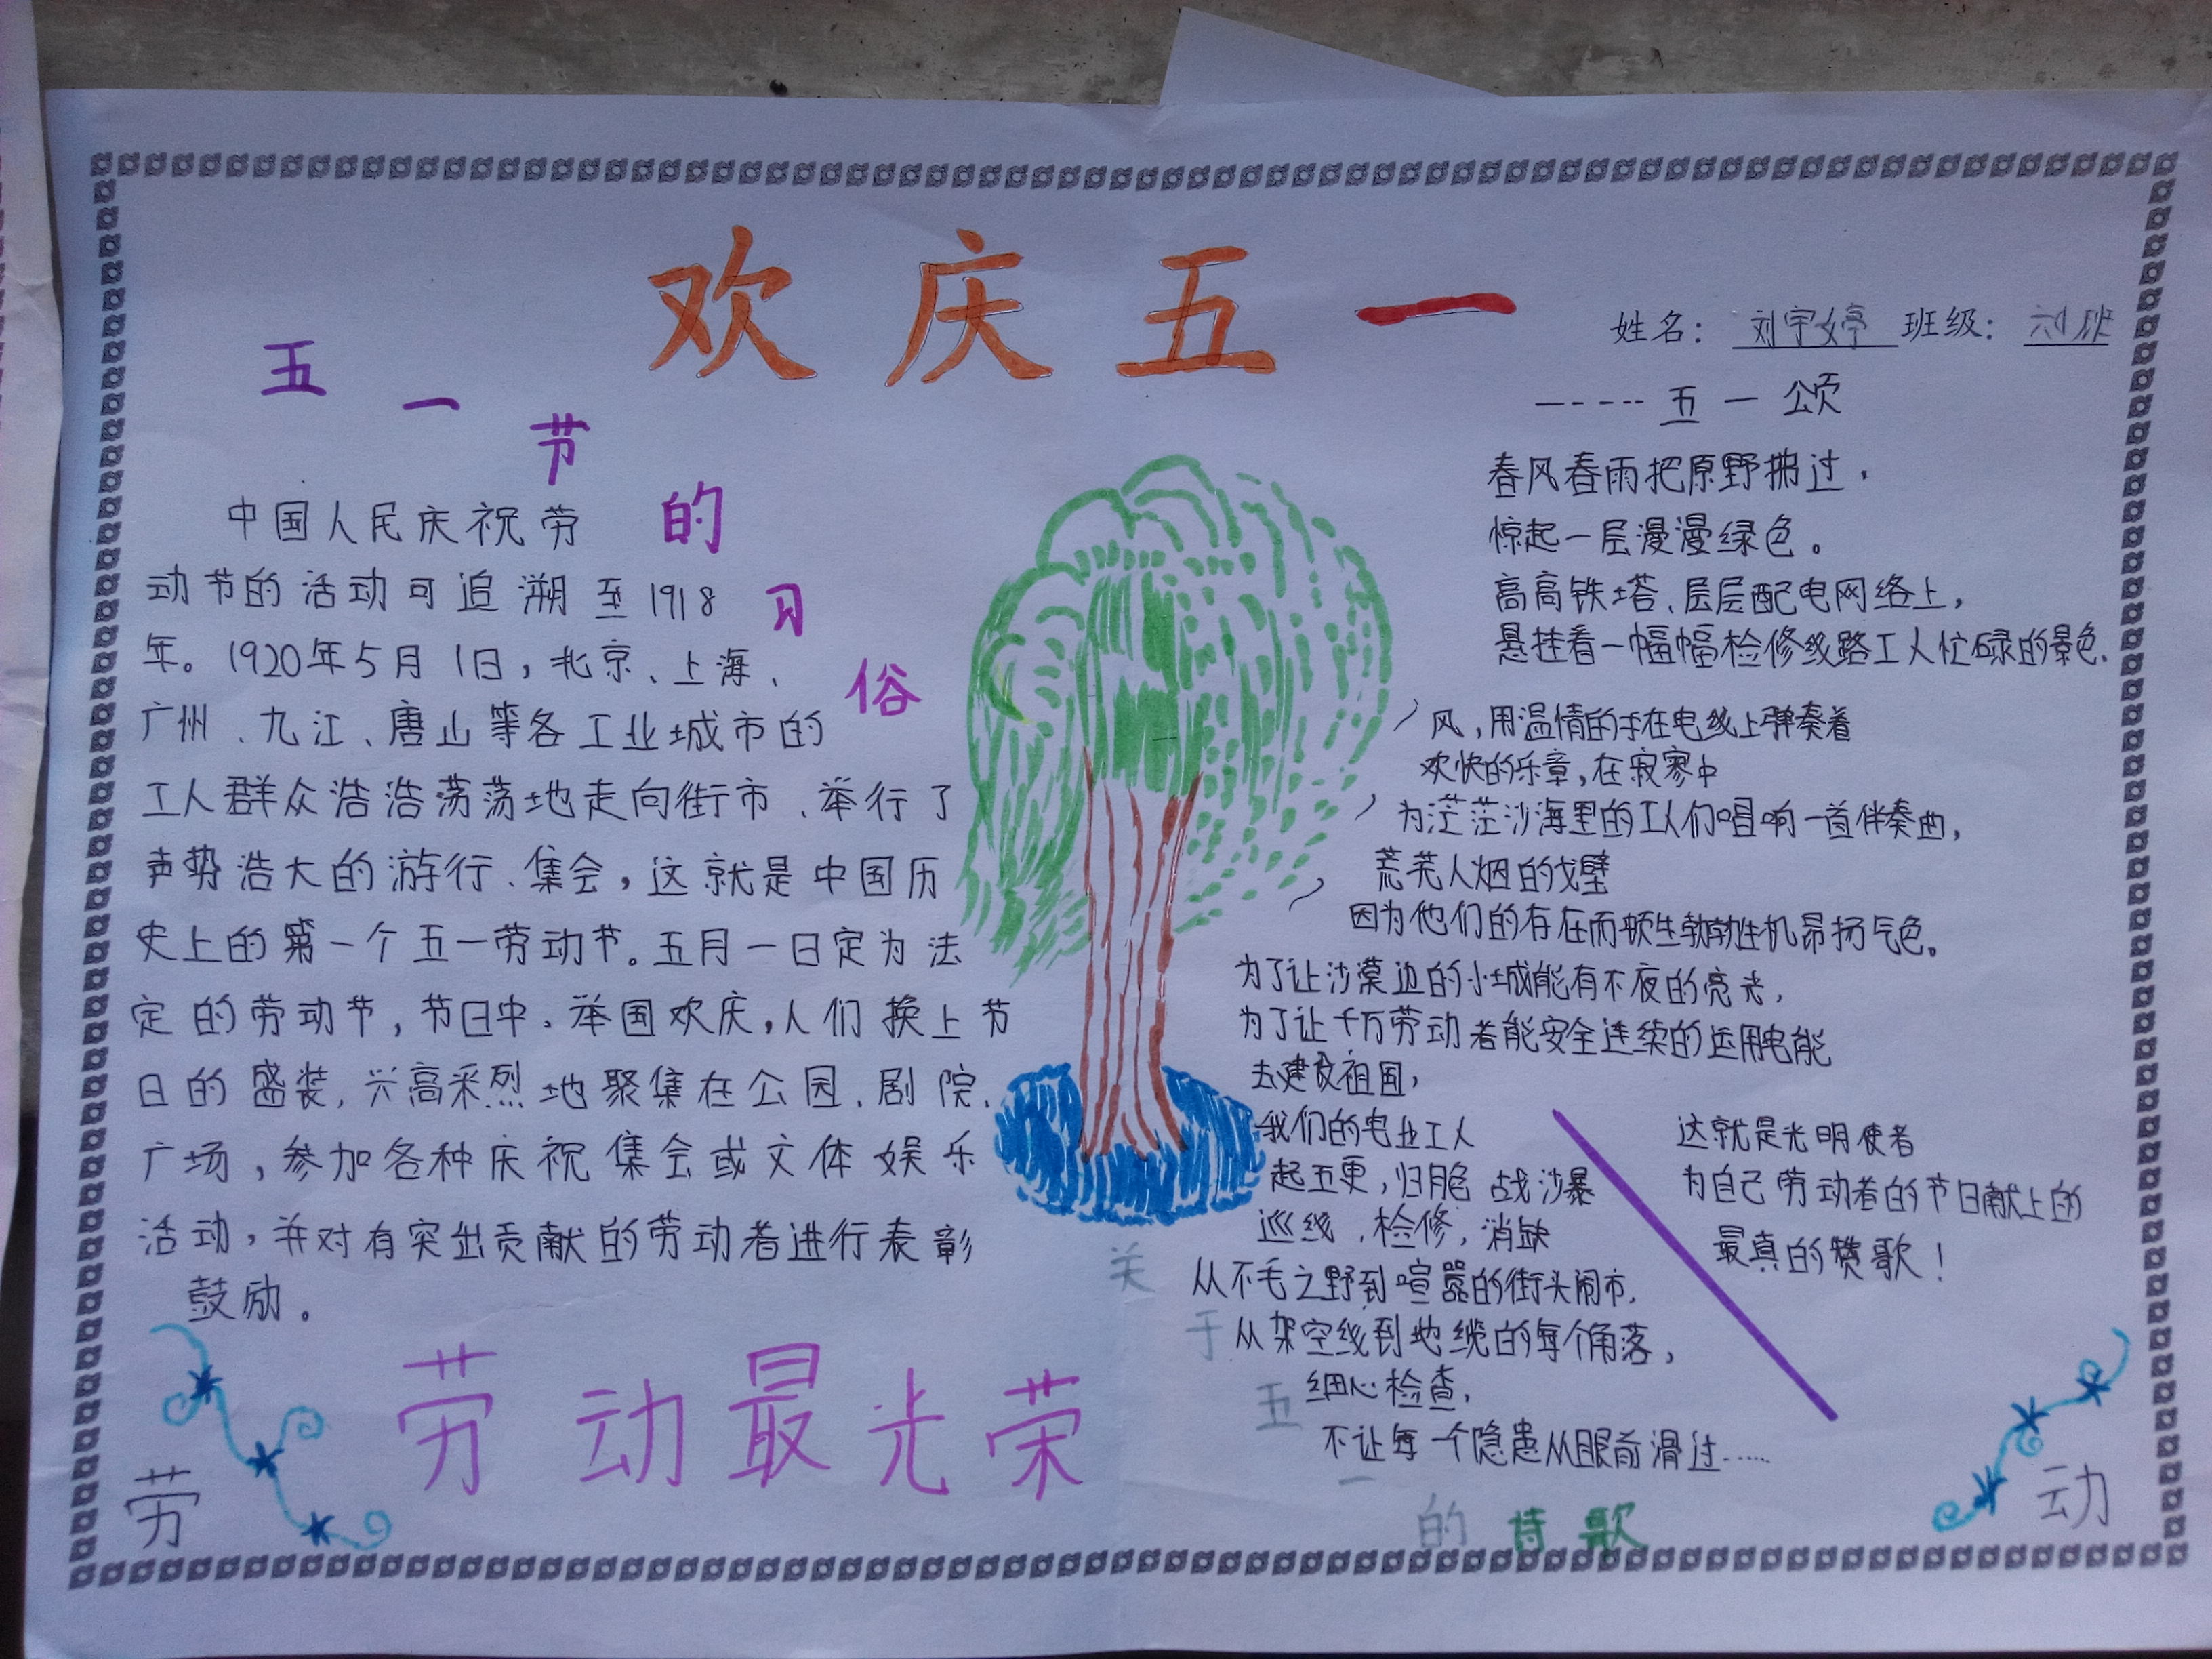 欢庆五一
姓名：刘宇婷 班级：
五一节的习俗
中国人民庆祝劳
动节的活动可追溯至1918
年。1920年5月1日，北京、上海、
广州、九江、唐山等各工业城市的
工人群众浩浩荡荡地走向街市、举行了
声势浩大的游行、集会，这就是中国历
史上的第一个五一劳动节。五月一日定为法
定的劳动节，节日中，举国欢庆，人们换上节
日的盛装，兴高采烈地聚集在公园、剧院、
广场，参加各种庆祝集会或文体娱乐
活动，并对有突出贡献的劳动者进行表彰
鼓励。
劳动最光荣
劳
----五一颂
春风春雨把原野拂过，
惊起一层漫漫绿色。
高高铁塔、层层配电网络上，
悬挂着一幅幅检修线路工人忙碌的景色、
风，用温情的手在电线上弹奏着
欢快的乐章，在寂寥中
为茫茫沙海里的工人们唱响一首伴奏曲，
荒芜人烟的戈壁
因为他们的存在而顿生勃勃生机昂扬气色。
为了让沙漠边的小城能有不夜的亮光，
为了让千万劳动者能安全连续的运用电能
去建设祖国，
我们的电业工人
起五更，归 战沙暴
巡线、检修，消缺
从不毛之野到喧嚣的街头闹市，
从架空线到地缆的每个角落，
细心检查，
不让每一个隐患从眼前滑过……
这就是光明使者
为自己劳动者的节日献上的
最真的赞歌！
关于五一的诗歌
动